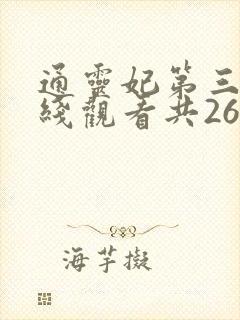 通靈妃第三
綫觀看共26
海芋擬